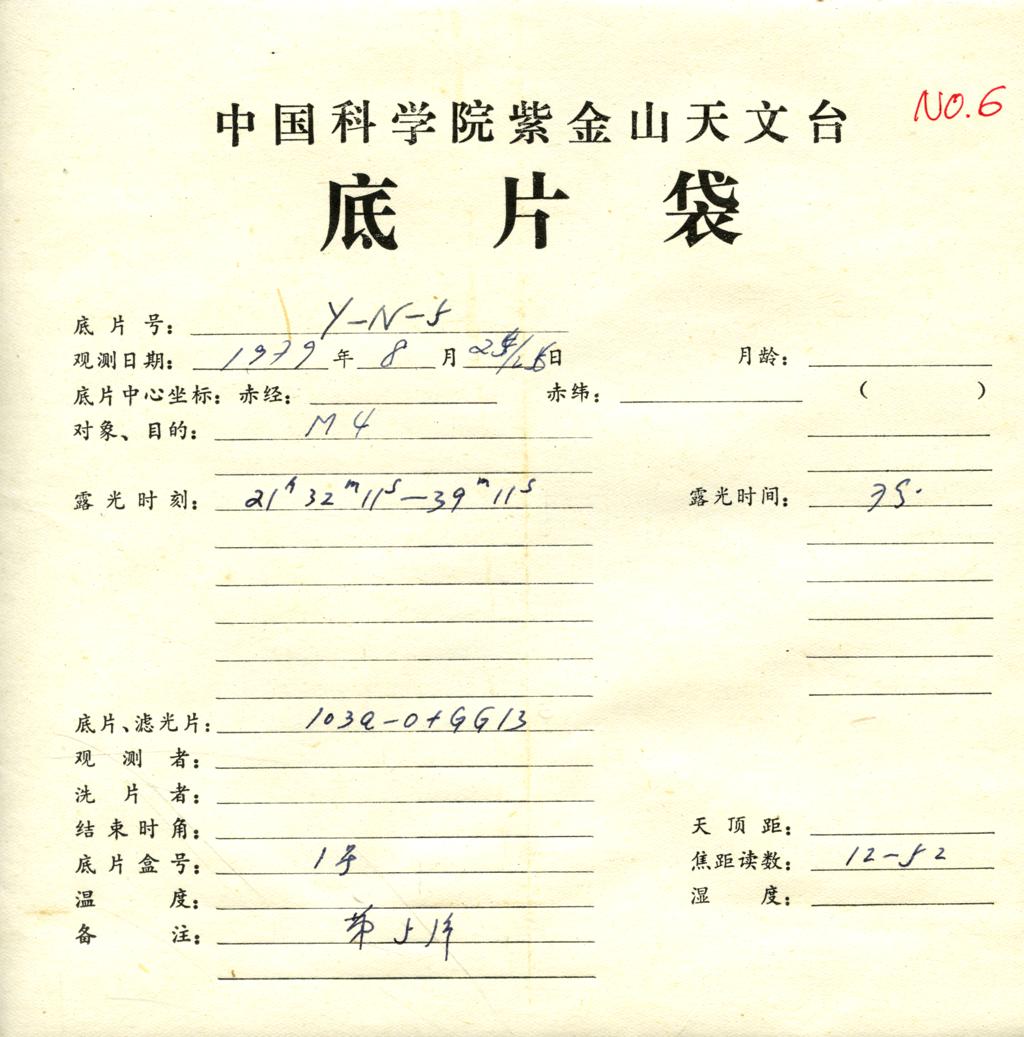 NO.6
中国科学院紫金山天文台
底片袋
底片号: Y-N-5
观测日期: 1979年8月日 月龄:
底片中心坐标: 赤经: 赤纬: ( )
对象、目的: M4
露光时刻: 21h32m11s—39m11s 露光时间:
底片、滤光片: 103a-0+GG13
观测者:
洗片者:
结束时角: 天顶距:
底片盒号: 1号 焦距读数: 12-52
温度: 湿度:
备注: 第5片